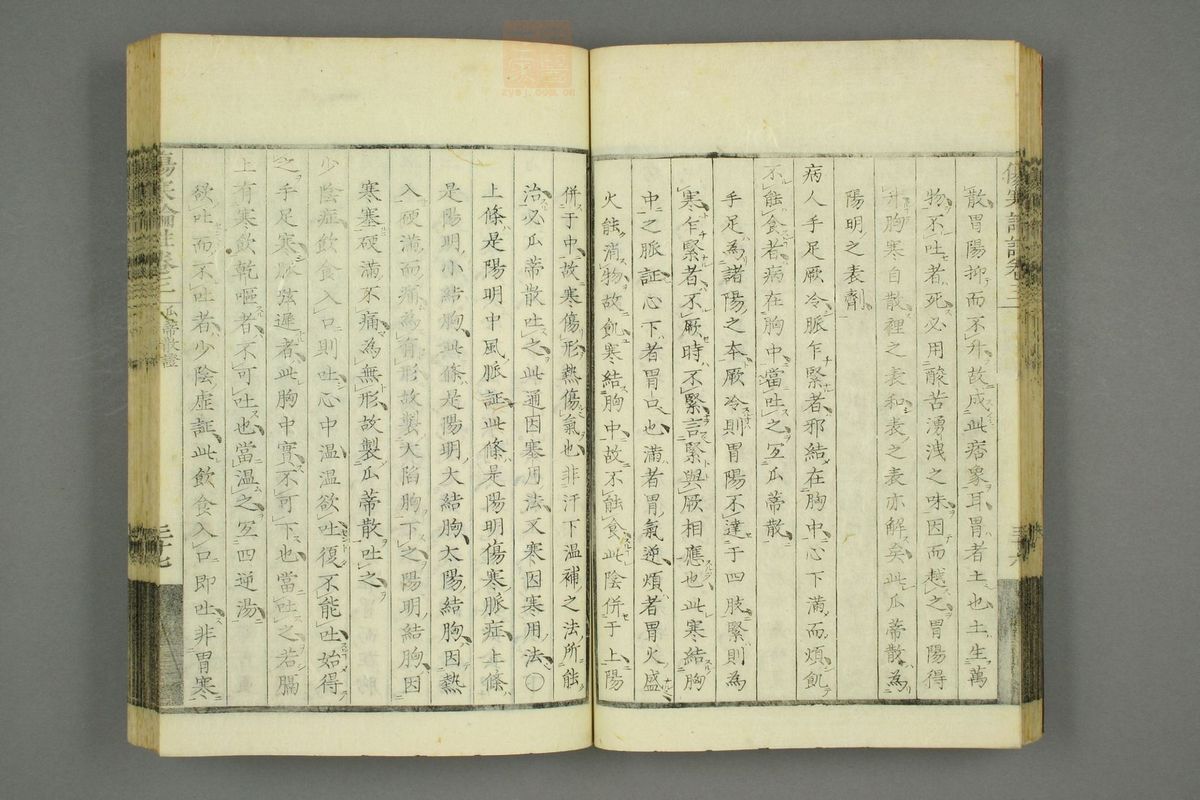 散胃陽抑而不升故成此痞象耳胃者土也土生萬
物不吐者死必用酸苦湧洩之味因而越之胃陽得
升胸寒自散裡之表和表之表亦解矣此瓜蒂散為
陽明之表劑
病人手足厥冷脈乍緊者邪結在胸中心下滿而煩飢
不能食者病在胸中當吐之宜瓜蒂散
手足為諸陽之本厥冷則胃陽不達于四肢緊則為
寒乍緊者不厥時不緊言緊與厥相應也此寒結胸
中之脈証心下者胃口也滿者胃氣逆煩者胃火盛
火能消物故飢寒結胸中故不能食此陰併于上陽
併于中故寒傷形熱傷氣也非汗下溫補之法所能
治必瓜蒂散吐之此通因塞用法又寒因寒用法○
上條是陽明中風脈証此條是陽明傷寒脈症上條
是陽明小結胸此條是陽明大結胸太陽結胸因熱
入硬滿而痛為有形故製大陷胸下之陽明結胸因
寒塞硬滿不痛為無形故製瓜蒂散吐之
少陰症飲食入口則吐心中溫溫欲吐復不能吐始得
之手足寒脈弦遲者此胸中實不可下也當吐之若膈
上有寒飲乾嘔者不可吐也當溫之宜四逆湯
欲吐而不吐者少陰虛証此飲食入口即吐非胃寒